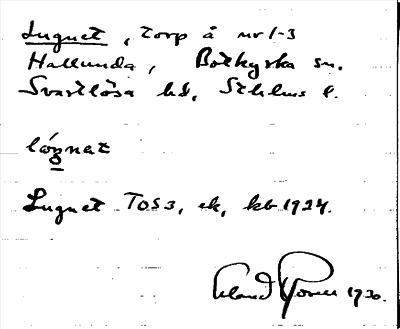 Lugnet, torp å nr 1-3
Hallunda, Botkyrka sn.
Svartlösa hd, Sthlms l.
lógnat
Lugnet TOS3, ek, kb 1924.
Erland 1930.